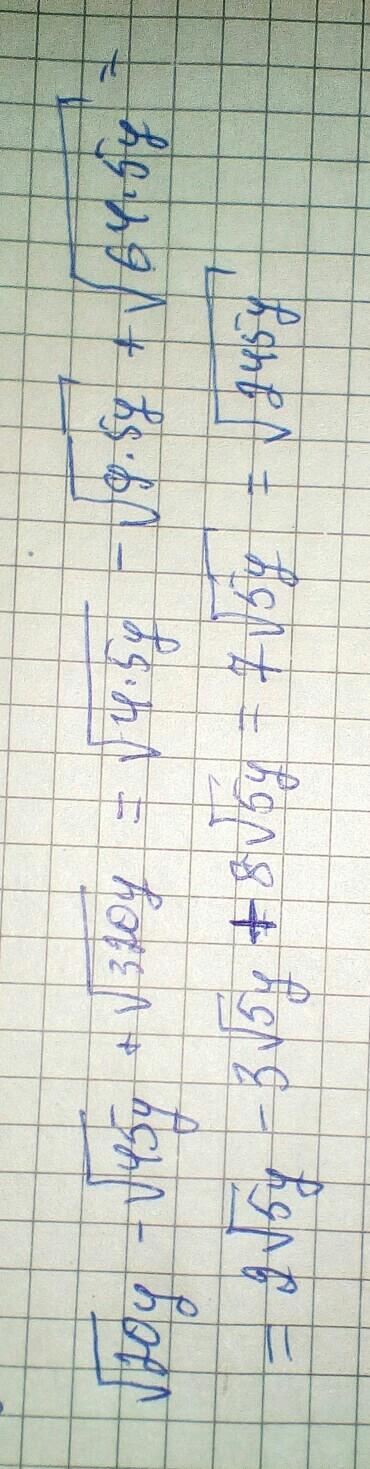 √20y - √45y + √320y = √4·5y - √9·5y + √64·5y =
= 2√5y - 3√5y + 8√5y = 7√5y = √245y